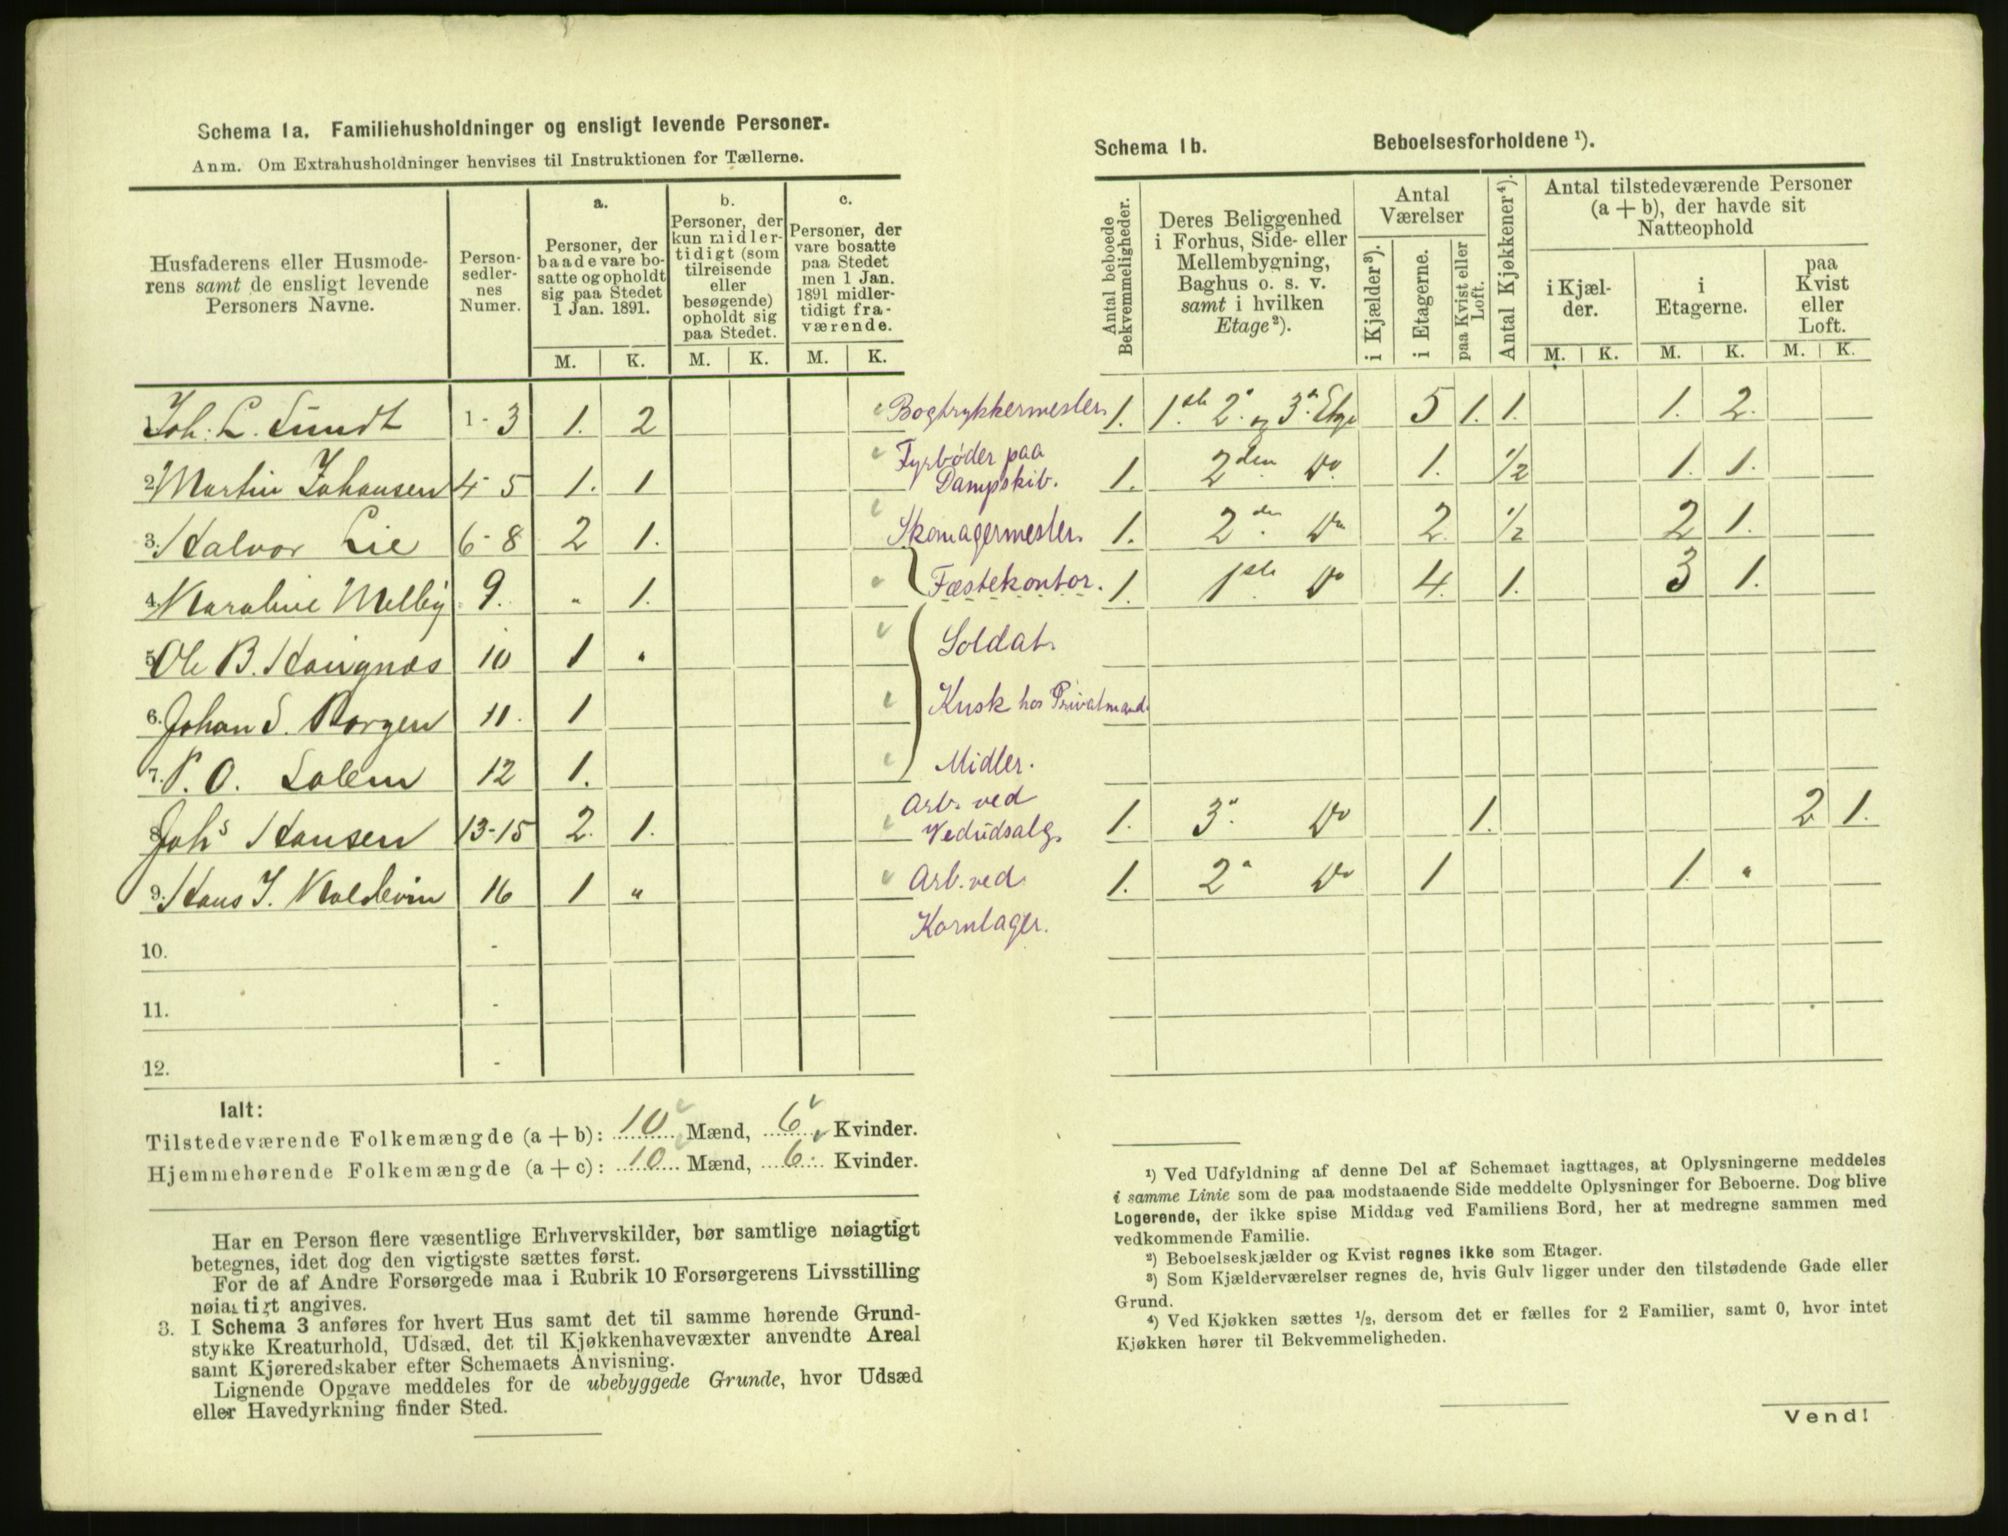 Schema 1a. Familiehusholdninger og ensligt levende Personer.
Anm. Om Extrahusholdninger henvises til Instruktionen for Tællerne.
Husfaderens eller Husmode-
rens samt de ensligt levende
Personers Navne.
Person-
sedler-
nes
Numer.
a.
Personer, der
baade vare bo-
satte og opholdt
sig paa Stedet
1 Jan. 1891.
b.
Personer, der
kun midler-
tidigt (som
tilreisende
eller
besøgende)
opholdt sig
paa Stedet.
c.
Personer, der
vare bosatte
paa Stedet
men 1 Jan.
1891 midler-
tidigt fra-
værende.
M. K. M. K. M. K.
1. Joh. L. Sundt 1-3 1. 2 Bogtrykkermester
2. Martin Johansen 4-5 1. 1 Fyrbøder paa
Dampskib.
3. Halvor Lie 6-8 2 1. Skomagermester
4. Karoline Melby 9. " 1. Fæstekontor.
5. Ole B. 10 1 " Soldat.
6. Johan S. Borgen 11. 1 Kusk hos Privatmand.
7. P. O. Solem 12 1. Midler.
8. Johs Hansen 13-15 2. 1. Arb. ved
Vedudsalg.
9. Hans J. Koldevin 16 1 " Arb. ved
Kornlager.
10. -
11. -
12. -
Ialt:
Tilstedeværende Folkemængde (a + b): 10 Mænd, 6 Kvinder.
Hjemmehørende Folkemængde (a + c): 10 Mænd, 6 Kvinder.
Har en Person flere væsentlige Erhvervskilder, bør samtlige nøiagtigt
betegnes, idet dog den vigtigste sættes først.
For de af Andre Forsørgede maa i Rubrik 10 Forsørgerens Livsstilling
nøiagtigt angives.
3. I Schema 3 anføres for hvert Hus samt det til samme hørende Grund-
stykke Kreaturhold, Udsæd, det til Kjøkkenhavevæxter anvendte Areal
samt Kjøreredskaber efter Schemaets Anvisning.
Lignende Opgave meddeles for de ubebyggede Grunde, hvor Udsæd
eller Havedyrkning finder Sted.
Schema 1b. Beboelsesforholdene ¹).
Antal beboede
Bekvemmeligheder.
Deres Beliggenhed
i Forhus, Side- eller
Mellembygning,
Baghus o. s. v.
samt i hvilken
Etage ²).
Antal
Værelser
i Kjælder ³).
i Etagerne.
paa Kvist eller
Loft.
Antal Kjøkkener ⁴).
Antal tilstedeværende Personer
(a + b), der havde sit
Natteophold
i Kjæl-
der.
i
Etagerne.
paa
Kvist
eller
Loft.
M. K. M. K. M. K.
1. 1ste 2. og 3. Etge 5 1. 1. 1. 2.
1. 2den Do. 1. 1/2 1. 1.
1. 2den Do 2. 1/2 2 1.
1. 1ste Do 4. 1. 3 1.
1. 3. Do 1. 2 1.
1. 2 Do 1 1. "
¹) Ved Udfyldning af denne Del af Schemaet iagttages, at Oplysningerne meddeles
i samme Linie som de paa modstaaende Side meddelte Oplysninger for Beboerne. Dog blive
Logerende, der ikke spise Middag ved Familiens Bord, her at medregne sammen med
vedkommende Familie.
²) Beboelseskjælder og Kvist regnes ikke som Etager.
³) Som Kjælderværelser regnes de, hvis Gulv ligger under den tilstødende Gade eller
Grund.
⁴) Ved Kjøkken sættes 1/2, dersom det er fælles for 2 Familier, samt 0, hvor intet
Kjøkken hører til Bekvemmeligheden.
Vend!